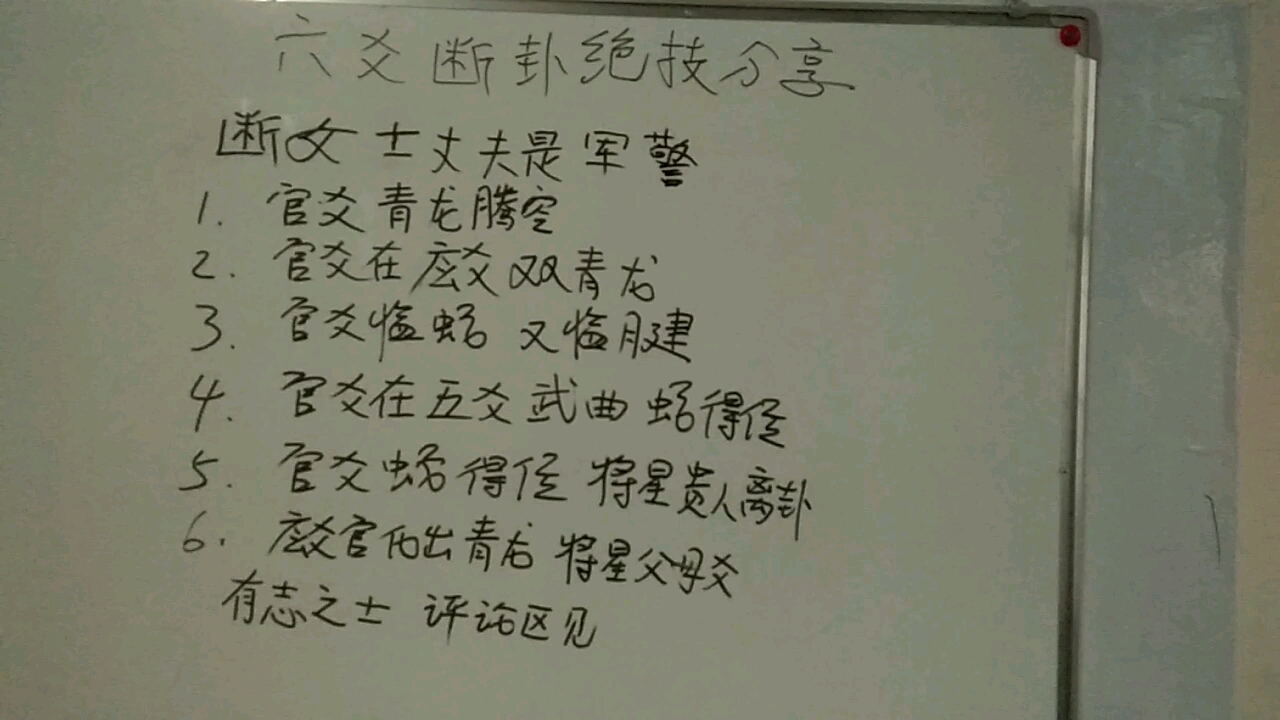 六爻断卦绝技分享
断女士丈夫是军警
1. 官爻青龙腾空
2. 官爻在应爻 双青龙
3. 官爻临蛇 又临月建
4. 官爻在五爻 武曲 蛇得位
5. 官爻 蛇 得位 将星贵人离卦
6. 应爻官伏出青龙 将星父母爻
有志之士 评论区见